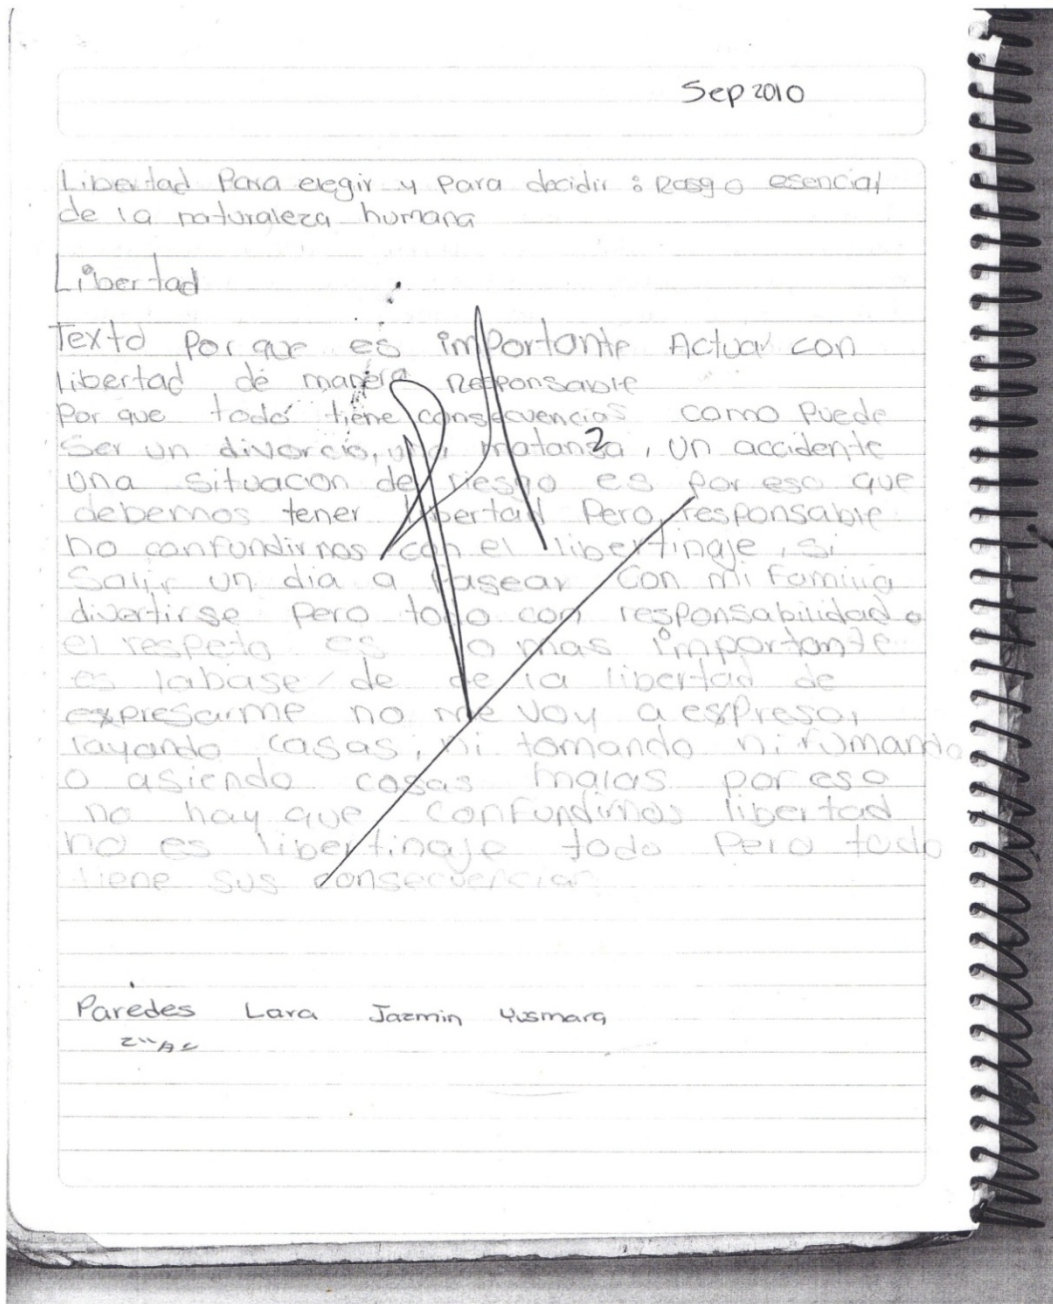 Sep 2010
Libertad Para elegir y para decidir : Rasgo esencial
de la naturaleza humana
Libertad
Texto Por que es importante Actuar con
libertad de manera Responsable
Por que todo tiene consecuencias como Puede
Ser un divorcio, una matanza, un accidente
una situacion de riesgo es por eso que
debemos tener libertad Pero responsable
no confundirnos con el libertinaje, si
Salir un dia a Pasear con mi Familia
divertirse Pero todo con responsabilidad
el respeto es lo mas importante
es labase de de la libertad de
expresarme no me voy a espresar
rayando casas, ni tomando ni fumando
o asiendo cosas malas por eso
no hay que confundirnos libertad
no es libertinaje todo Pero todo
tiene sus consecuencias
Paredes Lara Jazmin Yusmara